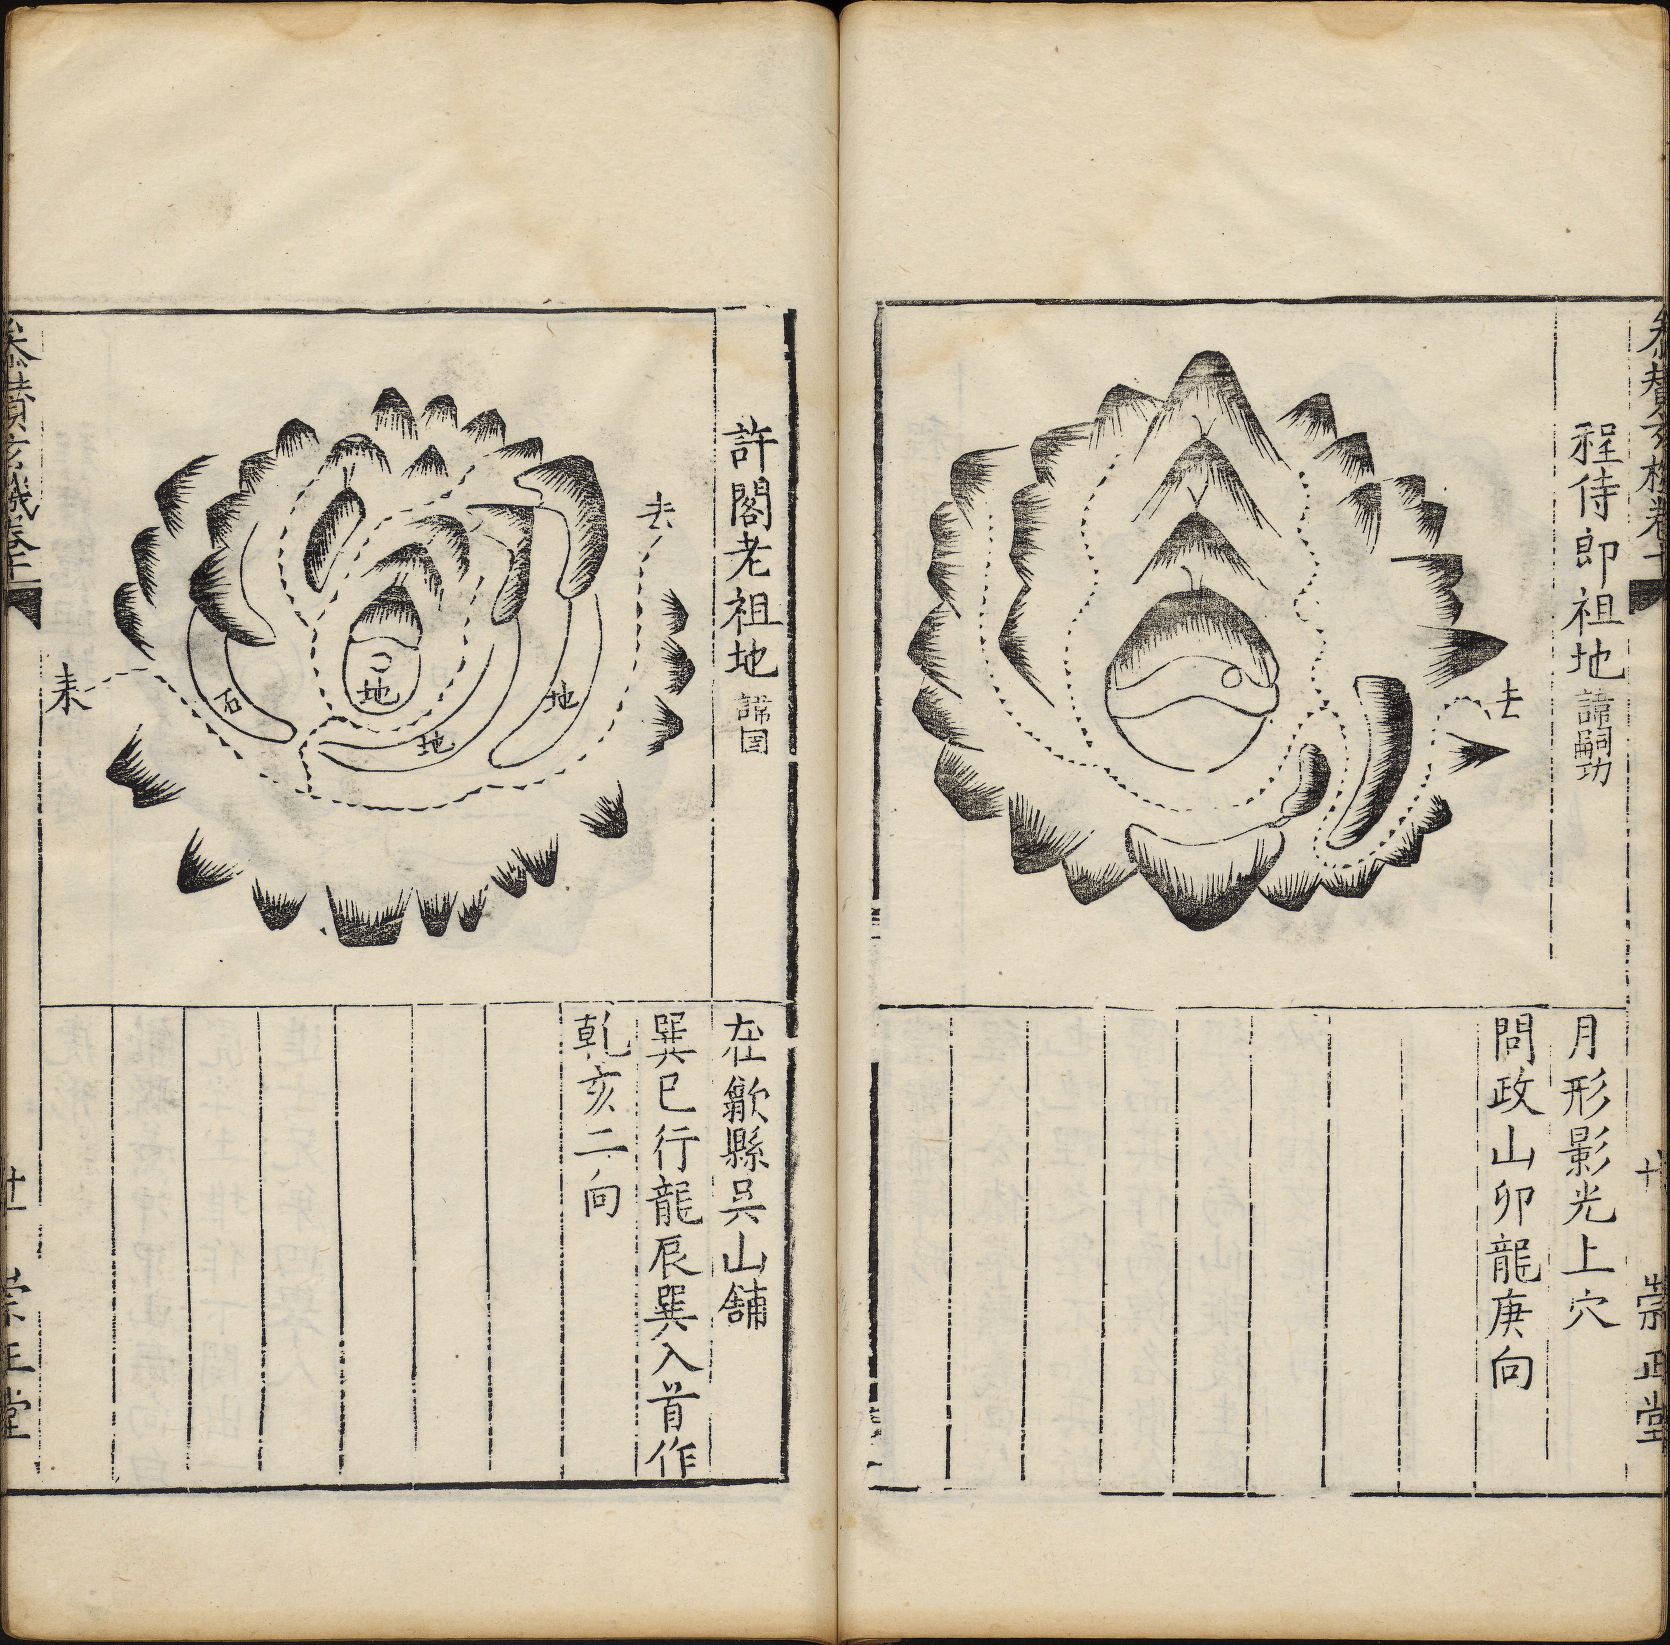 程侍郎祖地 諱嗣功
去
月形影光上穴
問政山卯龍庚向
崇正堂
許閣老祖地 諱國
去
来
石
地
地
地
在歙縣吳山舖
巽巳行龍辰巽入首作
乾亥二向
崇正堂